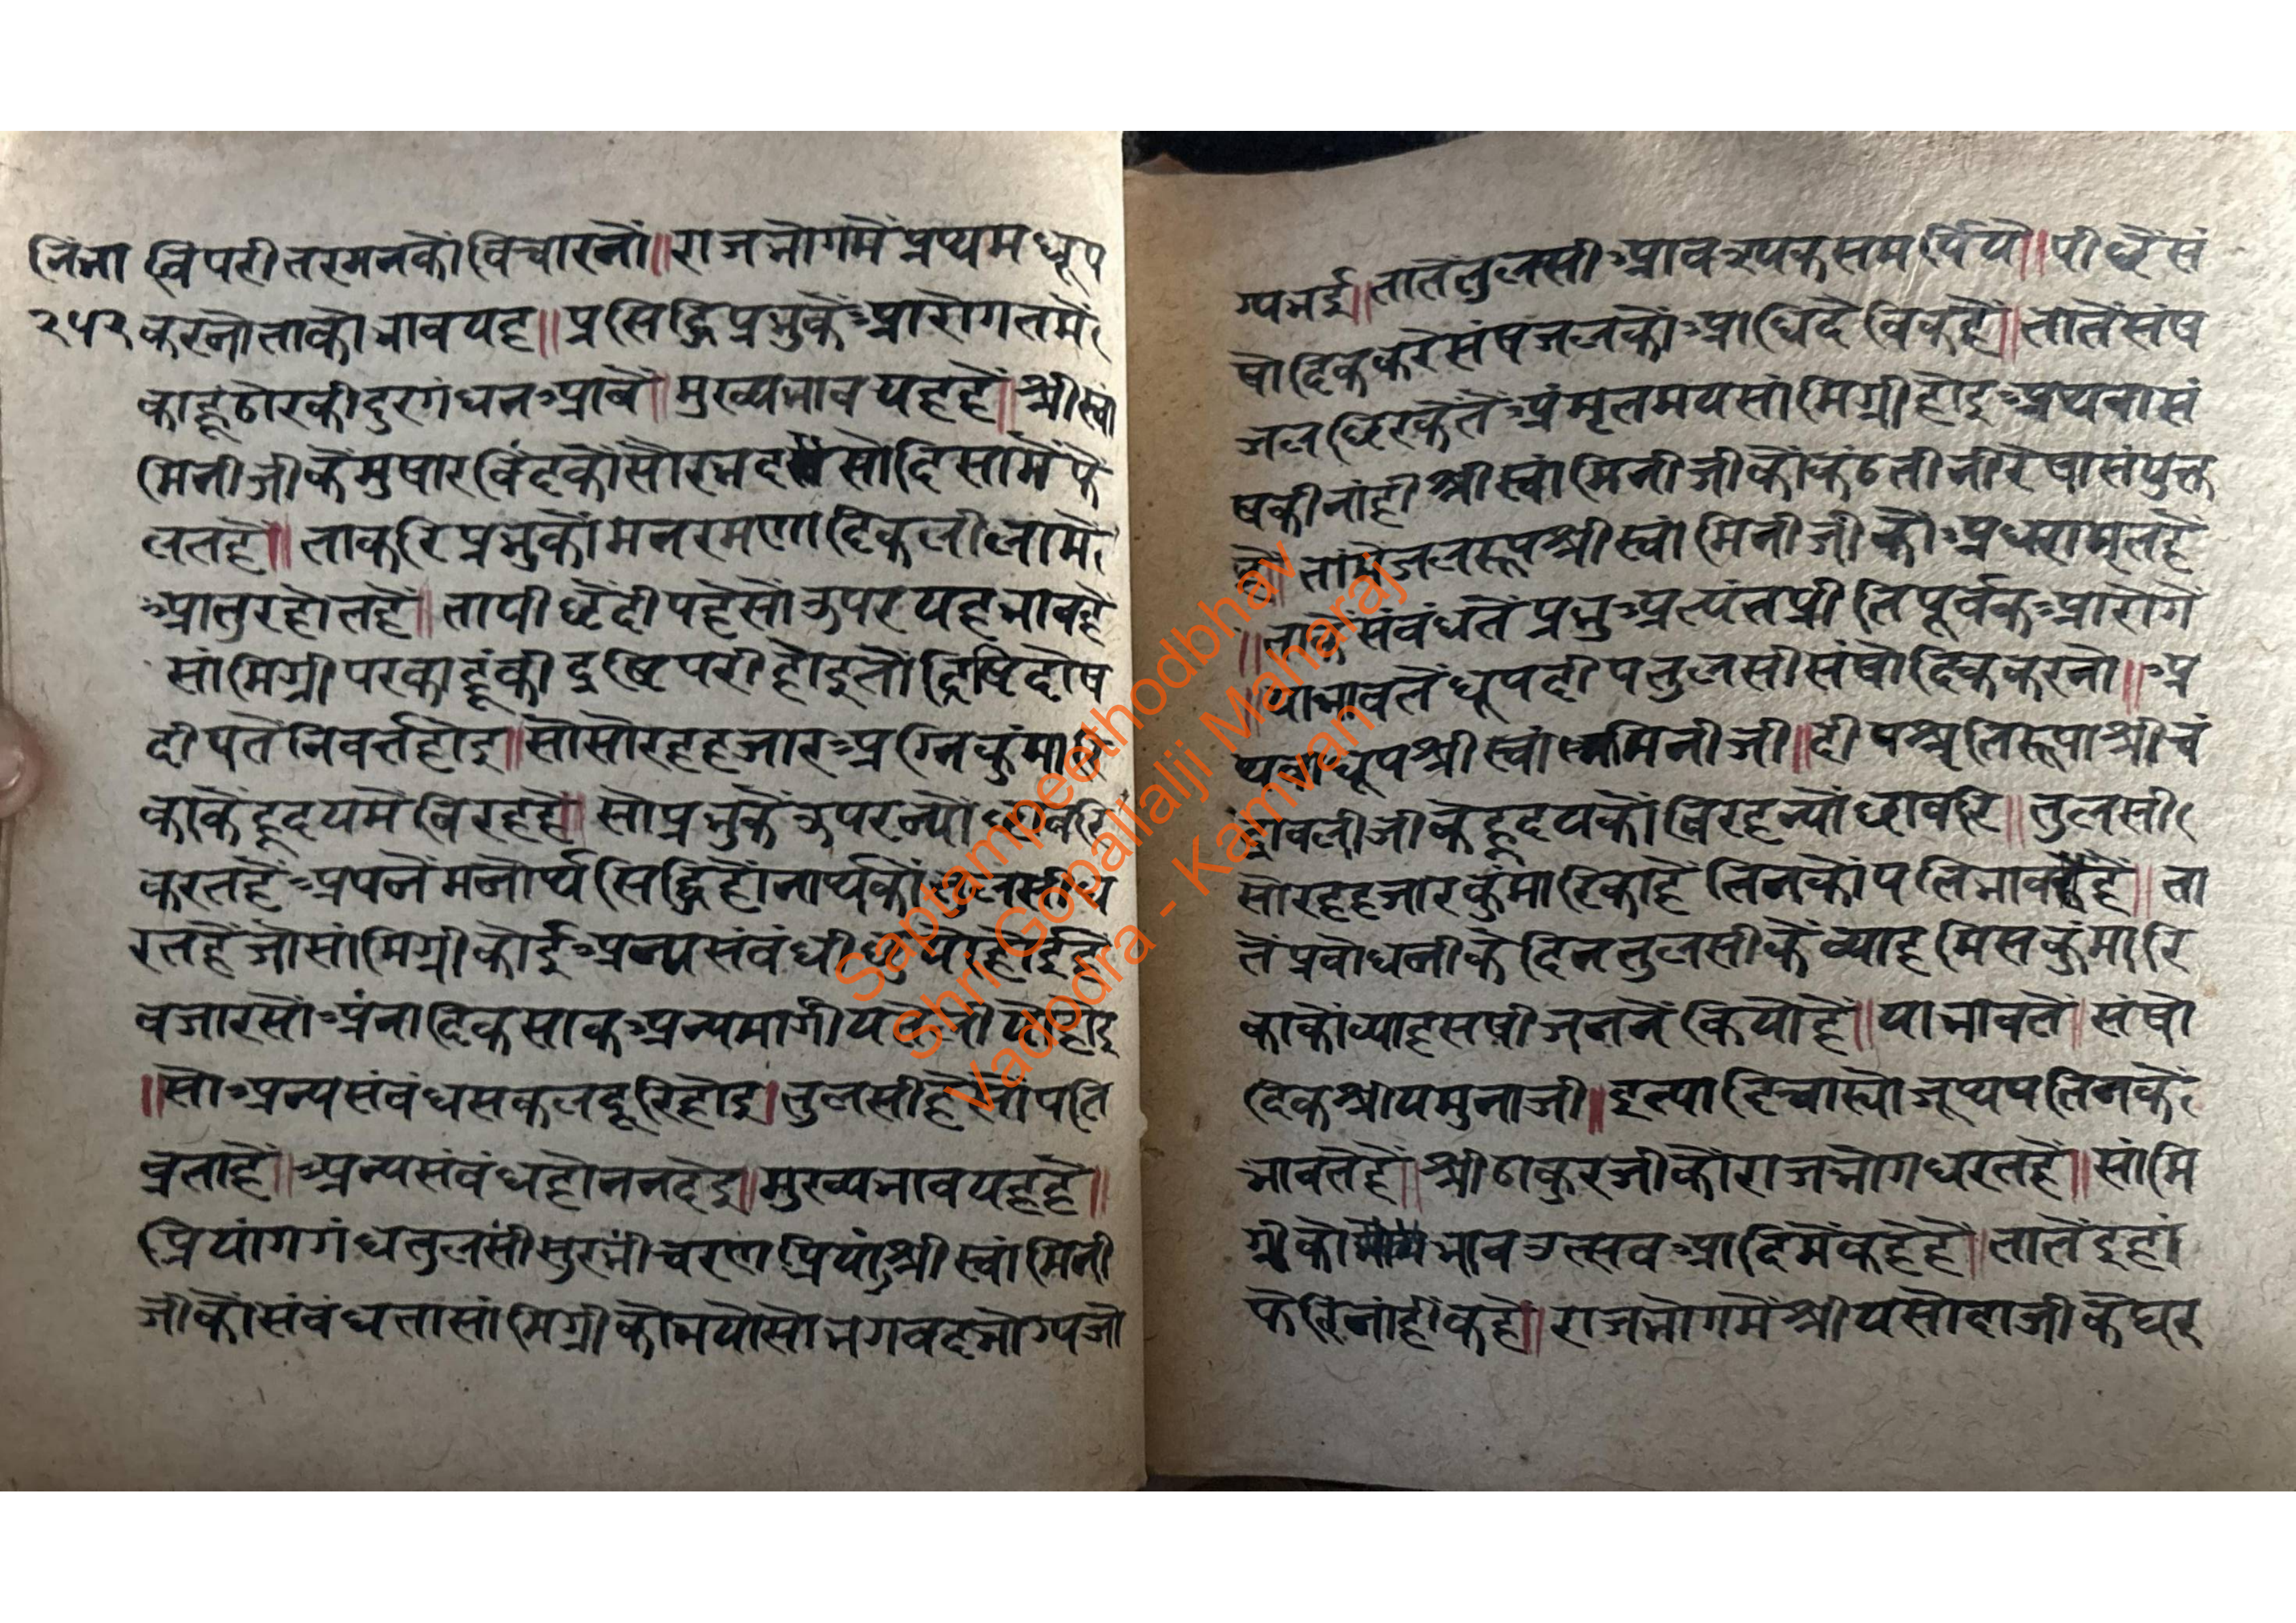 निंना विपरीतरमनकौ विचारनौं॥ राजभोगमें प्रथ्यम धूप
२५२ करनौ ताकौ भाव यह॥ प्रसिद्धि प्रभुकें आरोगतमें
काहू ठौरकी दुरगंध न आवें॥ मुख्यभाव यहहैं॥ श्रीस्वा
मिनीजीकें मुषारविंदकौं सौरभ दसों दिसामें फैं
लतहैं॥ ताकरि प्रभुकौं मन रमणादिक लीलामें
आतुर होतहें॥ ता पीछें दीपहैसों ऊपर यह भावहै
सांमिग्री पर काहूंकी द्रष्टि परी होइ तौ द्रिष्टि दोष
दीपतें निवर्त्त होइ॥ सो सोरह हजार अग्निकुंमारि
काकें हृदयमें विरहहै॥ सो प्रभुकें ऊपर न्यौंछावरि
करतहें अपनें मनोर्थ्य सिद्धि होंनार्थ्यकौं तुलसी ध
रतहें जो सांमिग्री कोई अन्य संबंधी छुयो होई दै
वजारसों अंनादिक साक अन्यमार्गीय
॥ सो अन्य संबंध सकल दूरि होइ। तुलसीहै सो पति
व्रताहैं॥ अन्य संबंध होंन न देइ॥ मुख्यभाव यहहै॥
प्रियांग गंध तुलसी सुरभी चरण प्रियां श्रीस्वांमिनी
जीकौ संबंध ता सांमिग्रीकौ भयो सो भगवद भोग्य जो
ग्य भई॥ तातें तुलसी आवश्यक समर्पिये॥ पीछें सं
षोदिक करें संष जलकौ आधिदैविकहैं॥ तातें संष
जल छिरकेतें अंमृतमय सांमिग्री होइ अथवा सं
षकी नांही श्रीस्वांमिनीजीकौं कंठ तीनी रेषा संयुक्त
है॥ तामें जलरूप श्रीस्वांमिनीजीकौ अधरामृतहै
॥ ताके संबंधतें प्रभु अत्यंत प्रीतिपूर्वक आरोगें
॥ या भावतें धूप दीप तुलसी संषोदिक करनों॥ अ
थवा धूप श्रीस्वांमिनीजी॥ दीप श्रुतिरूपा श्रीचं
द्रावलीजीके हृदयकौं विरह न्यौंछावरि॥ तुलसी
सोरह हजार कुंमारिकाहें तिनकों पतिभावहै॥ ता
तें प्रबोधनीके दिन तुलसीकें व्याह मिस कुंमारि
काकौं व्याह सषीजननें कियौंहै॥ या भावतें॥ संषो
दिक श्रीयमुनाजी॥ इत्यादि च्यास्यो जूथ्यपतिनकें
भावतेंहैं॥ श्रीठाकुरजीकौं राजभोग धरतहें॥ सांमि
ग्रीकौ भाव उत्सव आदिमें कहेहै॥ तातें इहां
फेरि नांहीं कहे॥ राजभोगमें श्रीयसोदाजीकें घर